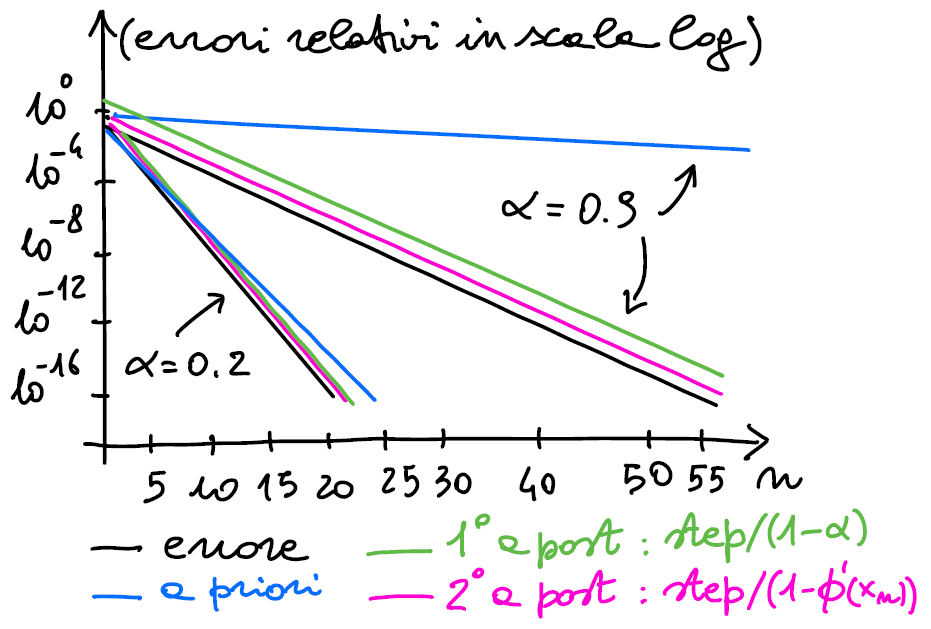 (errori relativi in scala log)
10⁰
10⁻⁴
10⁻⁸
10⁻¹²
10⁻¹⁶
α = 0.9
α = 0.2
5 10 15 20 25 30 40 50 55 n
errore
1° a post : step/(1-α)
a priori
2° a post : step/(1-ϕ'(xₙ))